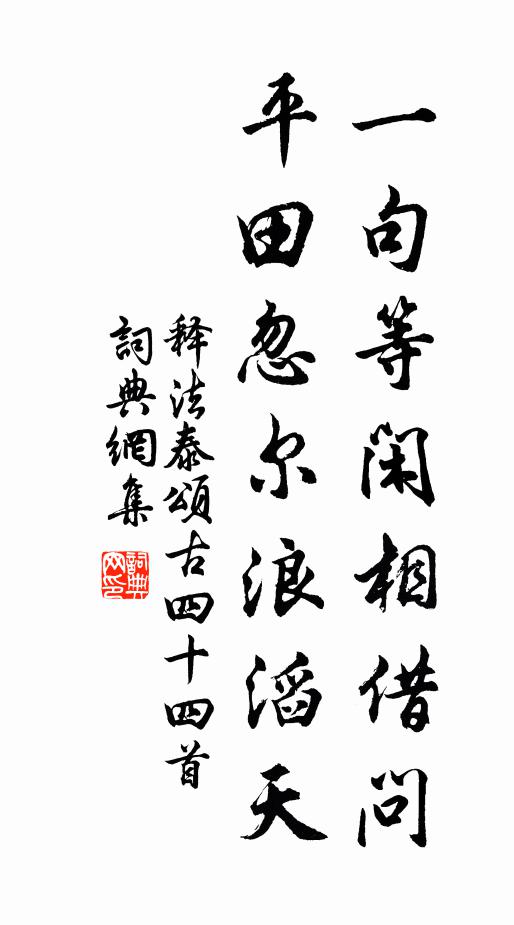 一句等闲相借问
平田忽尔浪滔天
释法泰頌古四十四首
詞典網集
詞典网印